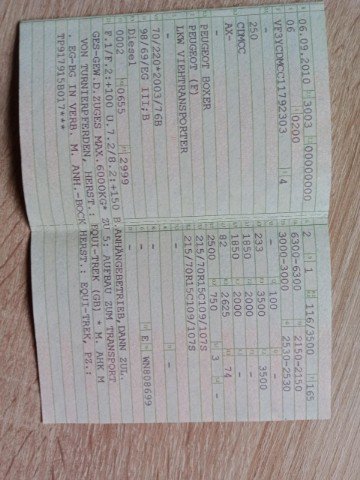 06.09.2010 3003 00000000
06 0200
VF3YCDMCC11792303 4
250
CDMCC
AX-
PEUGEOT BOXER
PEUGEOT (F)
LKW VIEHTRANSPORTER
70/220*2003/76B
98/69/EG III;B
Diesel
0002 0655 2999
2 1 116/3500 165
6300-6300 2150-2150
3000-3000 2530-2530
- 100 - -
233 3500 3500
1850 2000 -
1850 2000 -
82 2625 74
2500 750 3 -
215/70R15C109/107S
215/70R15C109/107S
-
- E WN808699
F.1/F.2:+100 U.7.2/8.2:+150 B ANHÄNGEBETRIEB,DANN ZUL.
GES-GEW.D.ZUGES MAX.6000KG* ZU 5: AUFBAU ZUM TRANSPORT
VON TURNIERPFERDEN, HERST.: EQUI-TREK (GB) * M. AHK M
. EG-BG IN VERB. M. ANH.-BOCK HERST.: EQUI-TREK, PZ.:
TP917915B017***